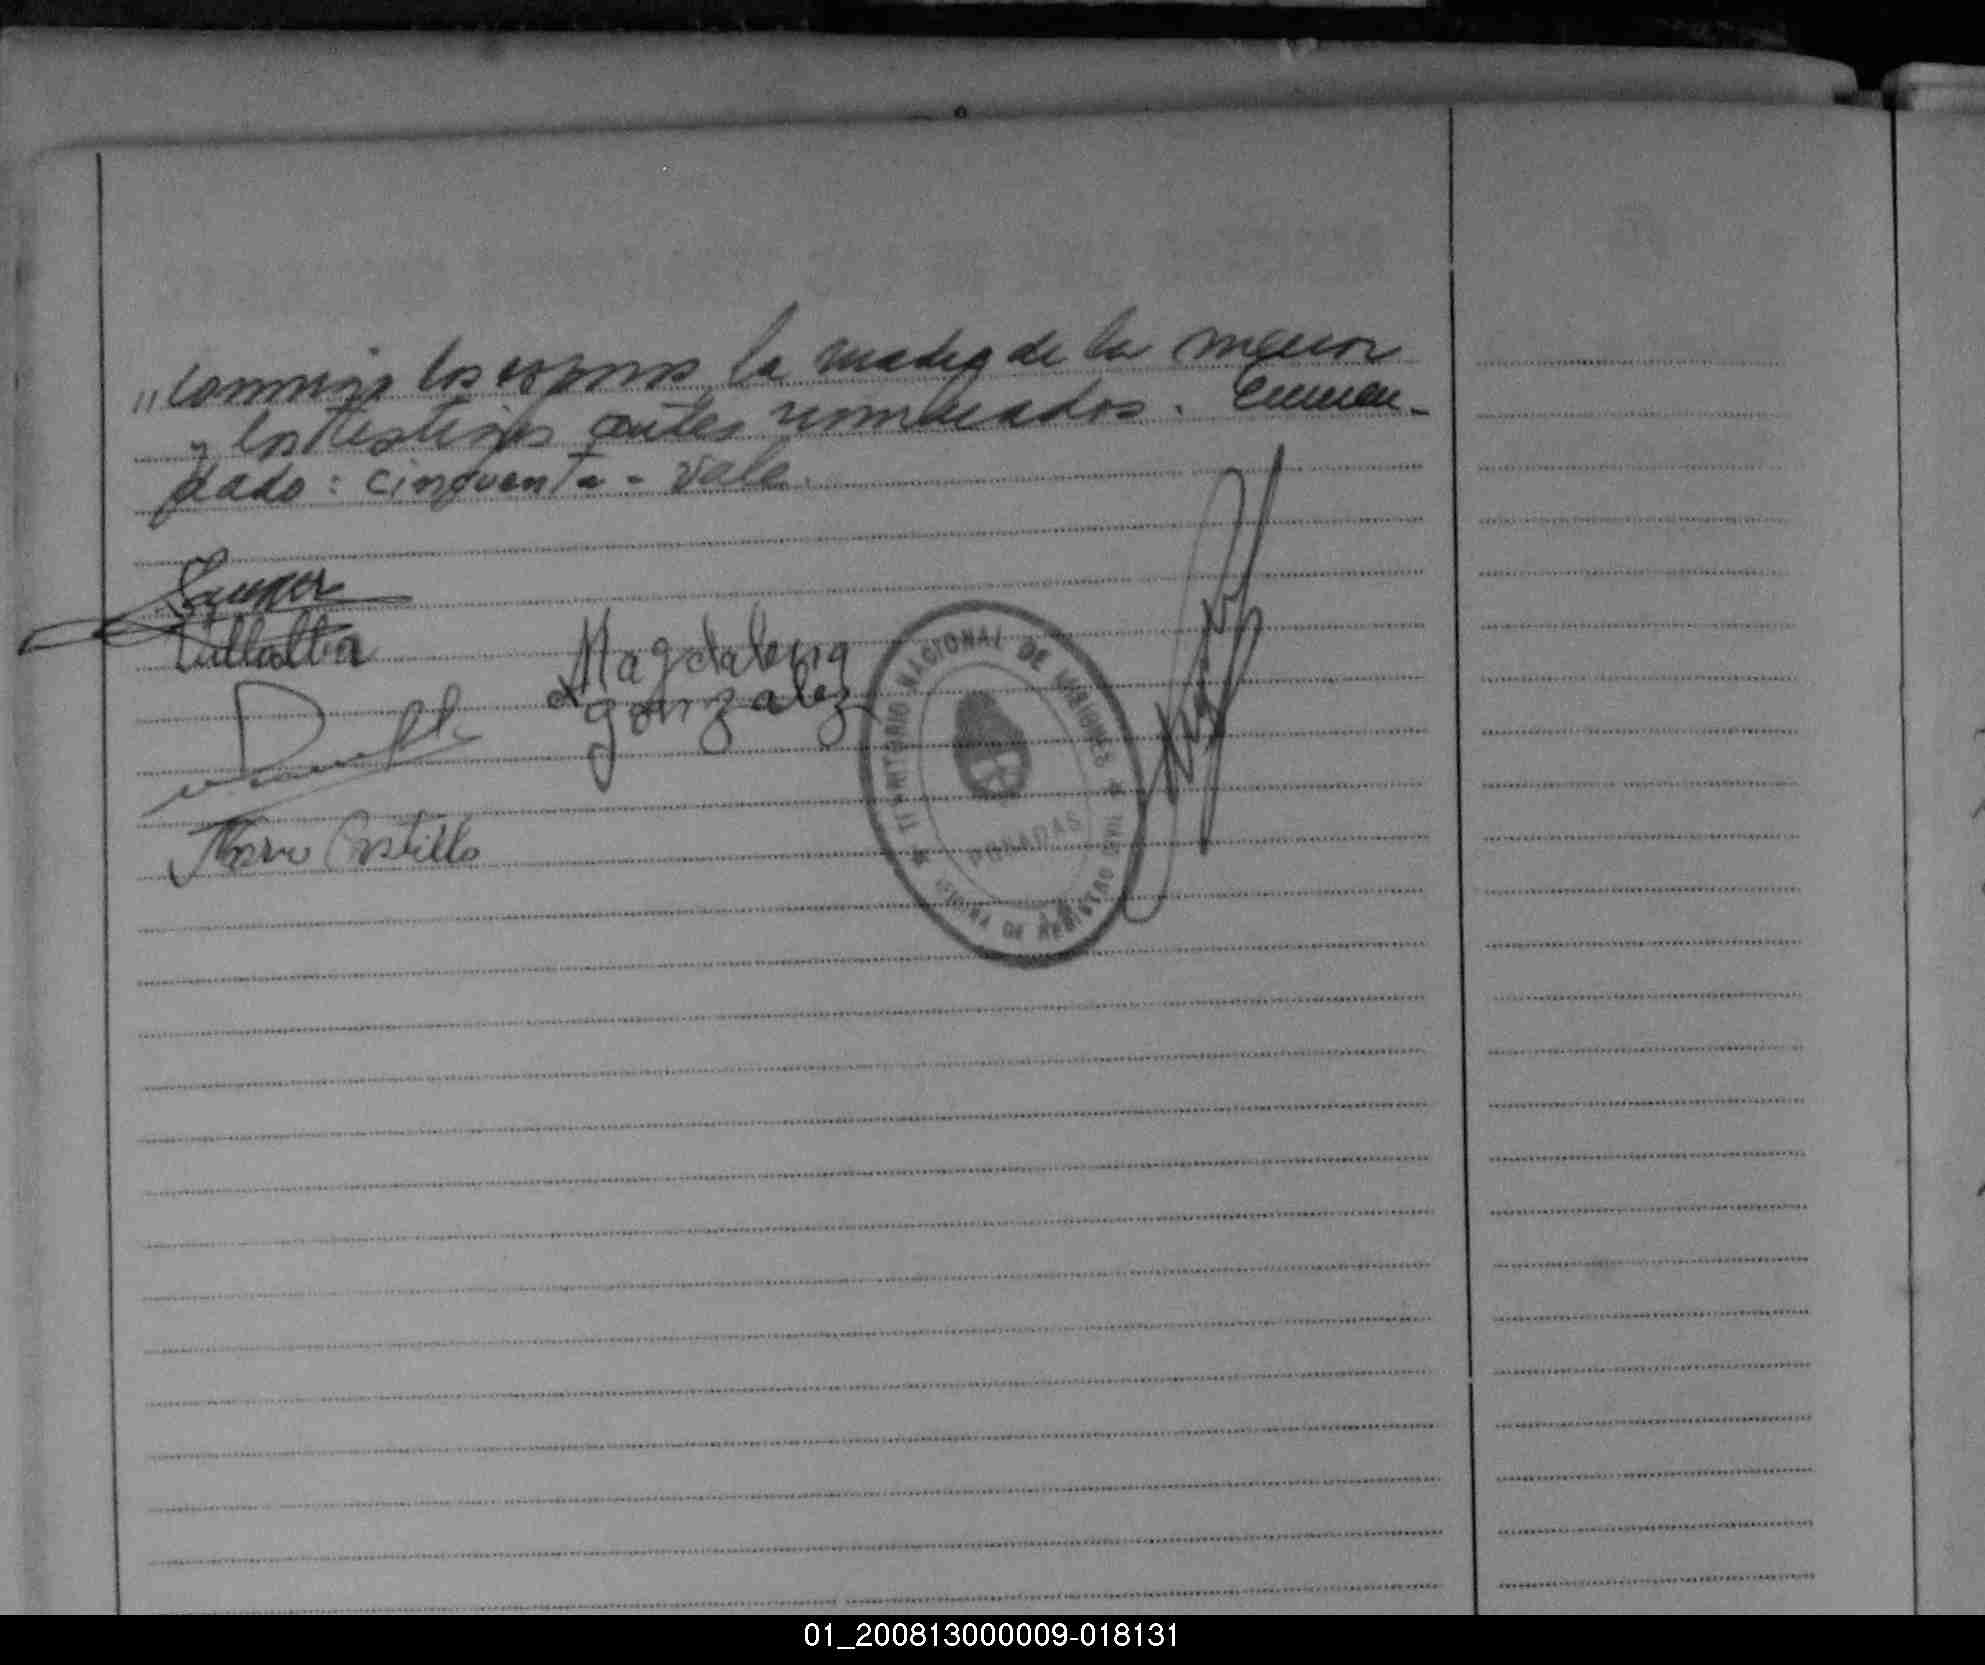 „ conmigo los esposos, la madre de la menor
y los testigos antes nombrados. Enmen-
dado: cinquenta - Vale.
Villalba
Magdalena
gonzalez
Castillo
TERRITORIO NACIONAL DE MISIONES
POSADAS
OFICINA DE REGISTRO CIVIL
01_200813000009-018131